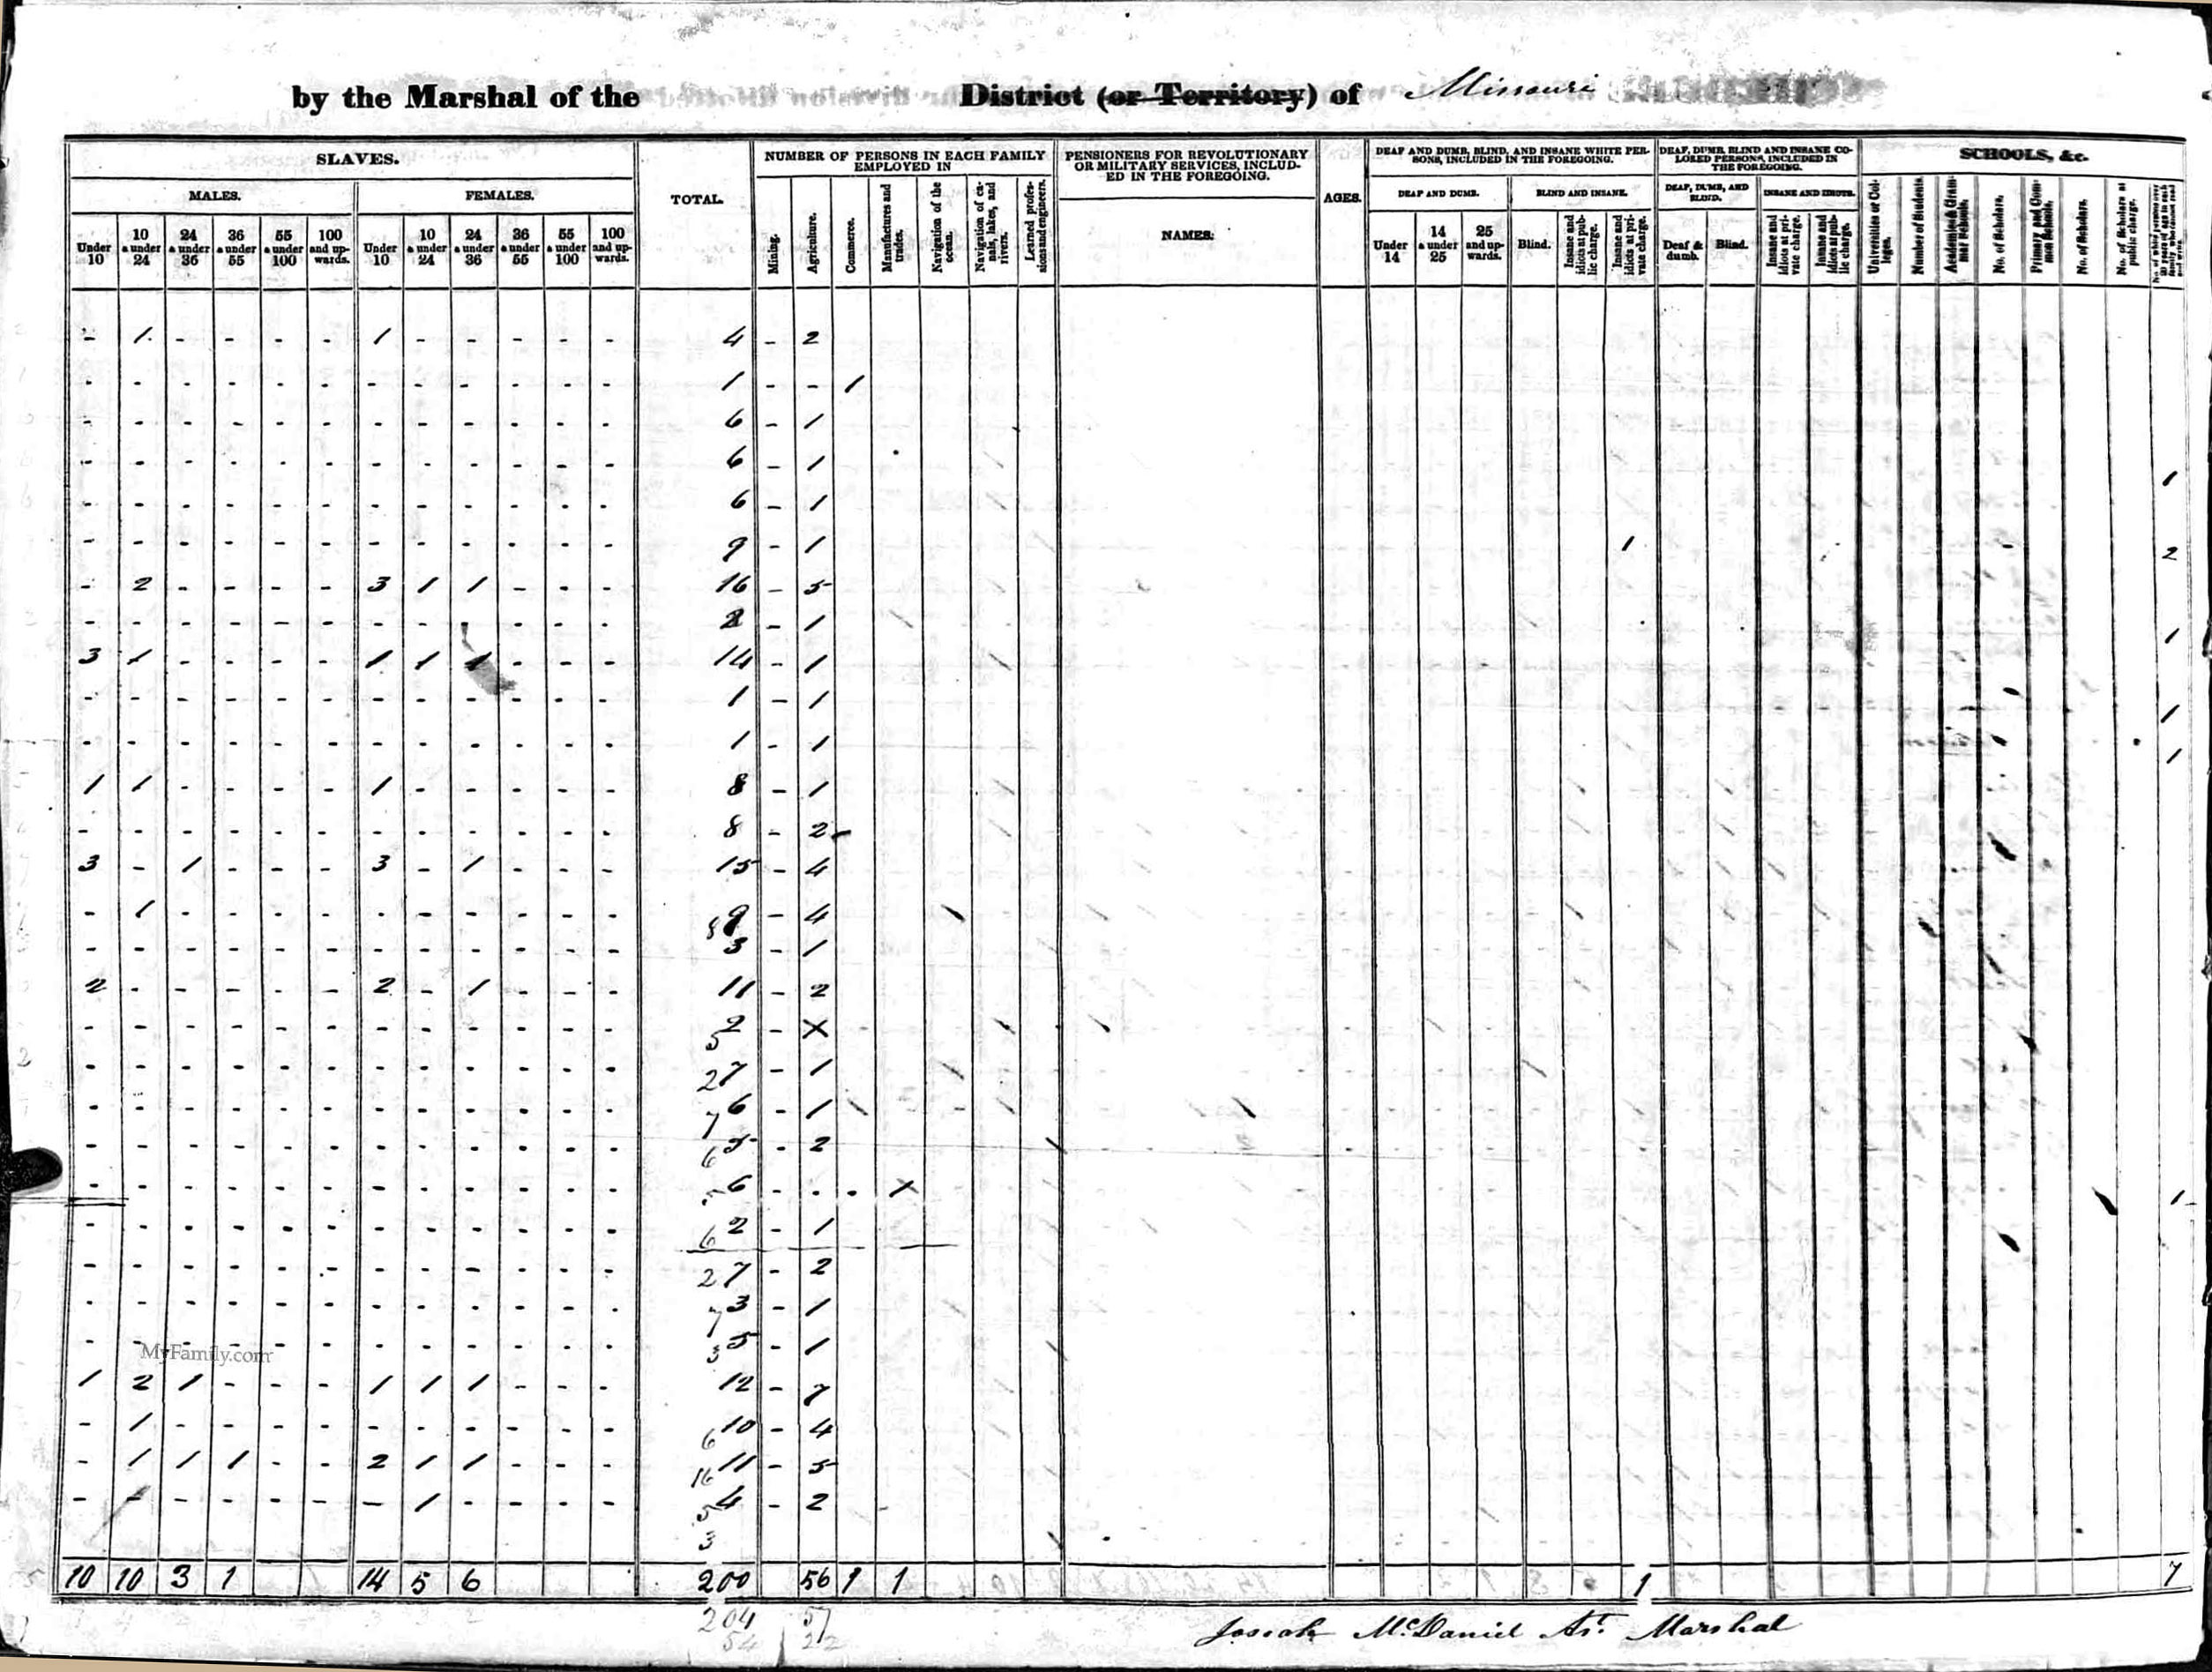 by the Marshal of the District (or Territory) of Missouri
SLAVES.
MALES. FEMALES.
Under 10
10 & under 24
24 & under 36
36 & under 55
55 & under 100
100 and upwards.
Under 10
10 & under 24
24 & under 36
36 & under 55
55 & under 100
100 and upwards.
TOTAL.
NUMBER OF PERSONS IN EACH FAMILY
EMPLOYED IN
Mining.
Agriculture.
Commerce.
Manufactures and trades.
Navigation of the ocean.
Navigation of canals, lakes, and rivers.
Learned professions and engineers.
PENSIONERS FOR REVOLUTIONARY
OR MILITARY SERVICES, INCLUD-
ED IN THE FOREGOING.
NAMES.
AGES.
DEAF AND DUMB, BLIND, AND INSANE WHITE PER-
SONS, INCLUDED IN THE FOREGOING.
DEAF AND DUMB.
Under 14
14 & under 25
25 and upwards.
BLIND AND INSANE.
Blind.
Insane and idiots at public charge.
Insane and idiots at private charge.
DEAF, DUMB, BLIND AND INSANE CO-
LORED PERSONS, INCLUDED IN
THE FOREGOING.
DEAF, DUMB, AND
BLIND.
Deaf & dumb.
Blind.
INSANE AND IDIOTS.
Insane and idiots at private charge.
Insane and idiots at public charge.
SCHOOLS, &c.
Universities or Colleges.
Number of Students.
Academies & Grammar Schools.
No. of Scholars.
Primary and Common Schools.
No. of Scholars.
No. of Scholars at public charge.
- 1 - - - - 1 - - - - - 4 - 2
- - - - - - - - - - - - 1 - - 1
- - - - - - - - - - - - 6 - 1
- - - - - - - - - - - - 6 - 1 1
- - - - - - - - - - - - 6 - 1
- - - - - - - - - - - - 9 - 1 1 2
- 2 - - - - 3 1 1 - - - 16 - 5
- - - - - - - - - - - - 2 - 1 1
3 1 - - - - 1 1 1 - - - 14 - 1
- - - - - - - - - - - - 1 - 1 1
- - - - - - - - - - - - 1 - 1 1
1 1 - - - - 1 - - - - - 8 - 1
- - - - - - - - - - - - 8 - 2
3 - 1 - - - 3 - 1 - - - 15 - 4
- 1 - - - - - - - - - - 9 - 4
8
- - - - - - - - - - - - 3 - 1
2 - - - - - 2 - 1 - - - 11 - 2
- - - - - - - - - - - - 2 - X
5
- - - - - - - - - - - - 7 - 1
2
- - - - - - - - - - - - 6 - 1
7
- - - - - - - - - - - - 5 - 2
6
- - - - - - - - - - - - 6 - - - X 1
5
- - - - - - - - - - - - 2 - 1
6
- - - - - - - - - - - - 7 - 2
2
- - - - - - - - - - - - 3 - 1
7
- - - - - - - - - - - - 5 - 1
3
MyFamily.com
1 2 1 - - - 1 1 1 - - - 12 - 7
- 1 - - - - - - - - - - 10 - 4
6
- 1 1 1 - - 2 1 1 - - - 11 - 5
16
- - - - - - - 1 - - - - 4 - 2
5
3
10 10 3 1 14 5 6 200 56 1 1 1 7
204 57
54 22
Josiah McDaniel Ast. Marshal